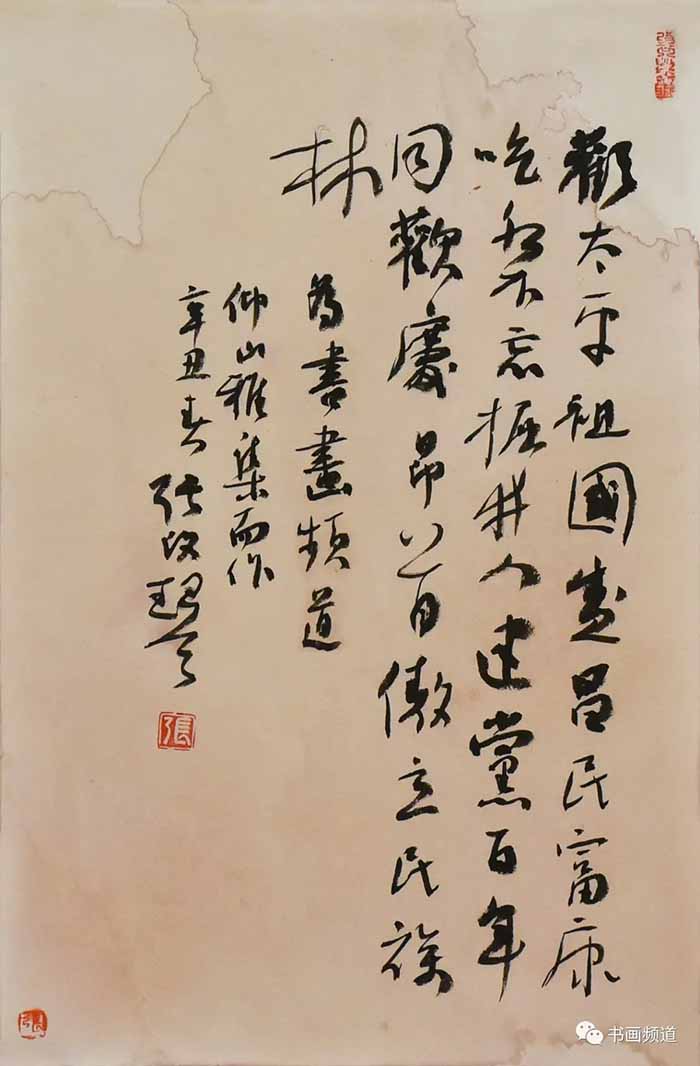 觀太平祖國盛昌民富康
吃水不忘掘井人建黨百年
同歡慶昂首傲立民族
林
為書畫頻道
仰山雅集而作
辛丑春張改琴
張
书画频道